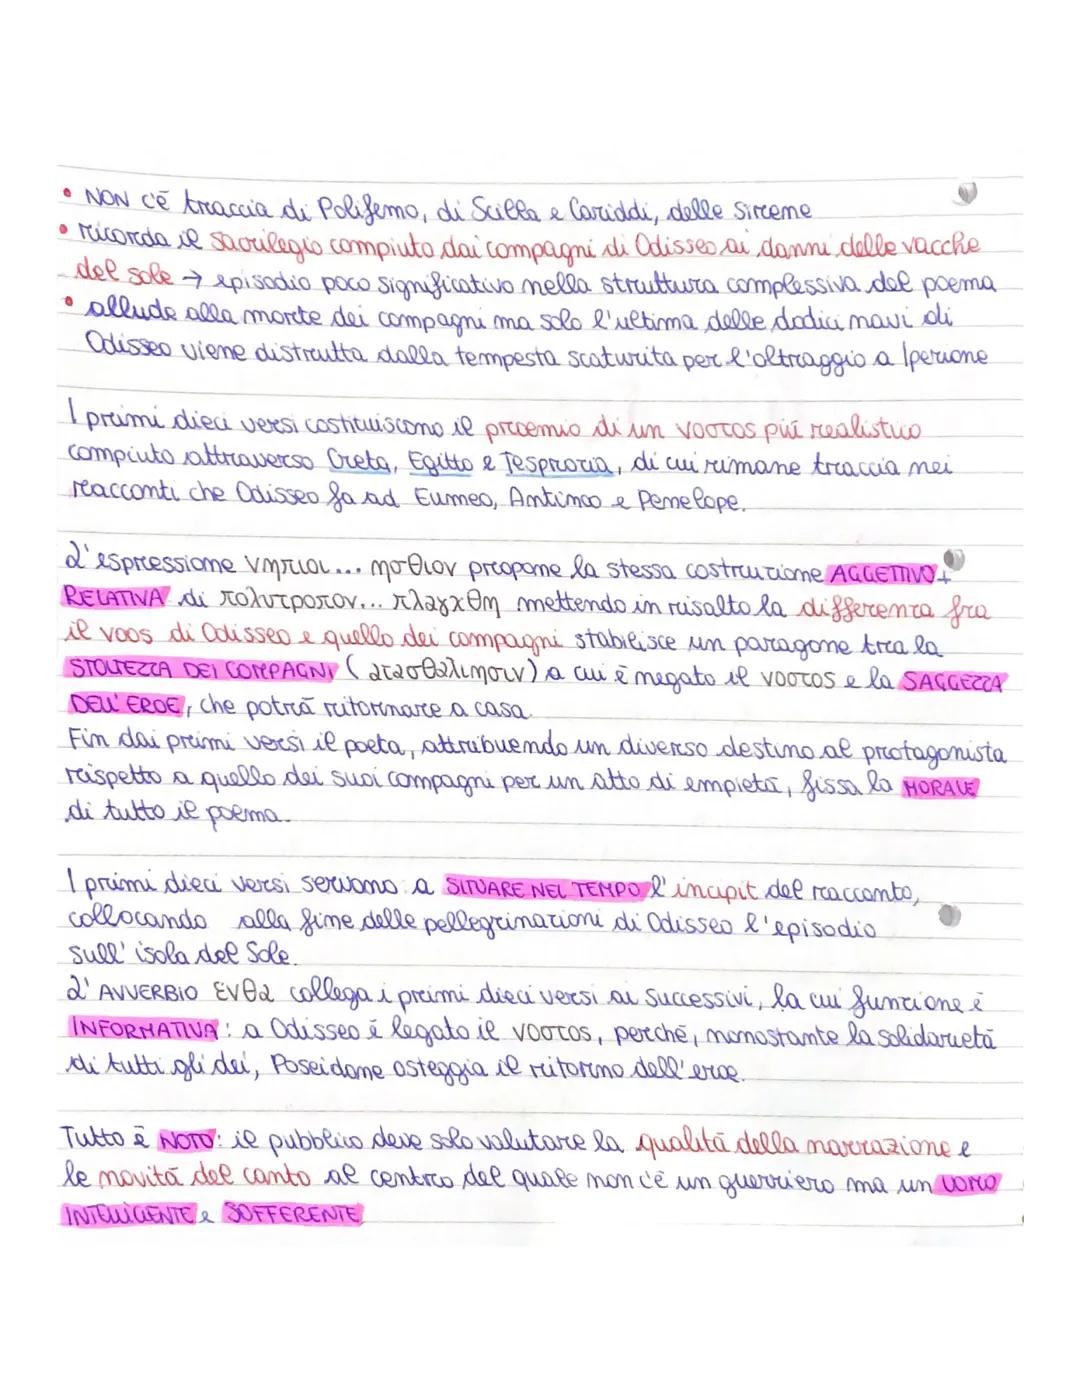 • NON c'è traccia di Polifemo, di Scilla e Cariddi, delle sirene
• ricorda il sacrilegio compiuto dai compagni di Odisseo ai danni delle vacche
del sole → episodio poco significativo nella struttura complessiva del poema
• allude alla morte dei compagni ma solo l'ultima delle dodici navi di
Odisseo viene distrutta dalla tempesta scaturita per l'oltraggio a Iperione
I primi dieci versi costituiscono il proemio di un νοστος più realistico
compiuto attraverso Creta, Egitto e Tesprozia, di cui rimane traccia nei
racconti che Odisseo fa ad Eumeo, Antinoo e Penelope.
L'espressione νηπιοι... ησθιον propone la stessa costruzione AGGETTIVO +
RELATIVA di πολυτροπον... πλαγχθη mettendo in risalto la differenza fra
il νοος di Odisseo e quello dei compagni stabilisce un paragone tra la
STOLTEZZA DEI COMPAGNI (ατασθαλιησιν) a cui è negato il νοστος e la SAGGEZZA
DELL'EROE, che potrà ritornare a casa.
Fin dai primi versi il poeta, attribuendo un diverso destino al protagonista
rispetto a quello dei suoi compagni per un atto di empietà, fissa la MORALE
di tutto il poema.
I primi dieci versi servono a SITUARE NEL TEMPO l'incipit del racconto,
collocando alla fine delle pellegrinazioni di Odisseo l'episodio
sull'isola del Sole.
L'AVVERBIO ενθα collega i primi dieci versi ai successivi, la cui funzione è
INFORMATIVA: a Odisseo è legato il νοστος, perché, nonostante la solidarietà
di tutti gli dei, Poseidone osteggia il ritorno dell'eroe.
Tutto è NOTO: il pubblico deve solo valutare la qualità della narrazione e
le novità del canto al centro del quale non c'è un guerriero ma un UOMO
INTELLIGENTE e SOFFERENTE